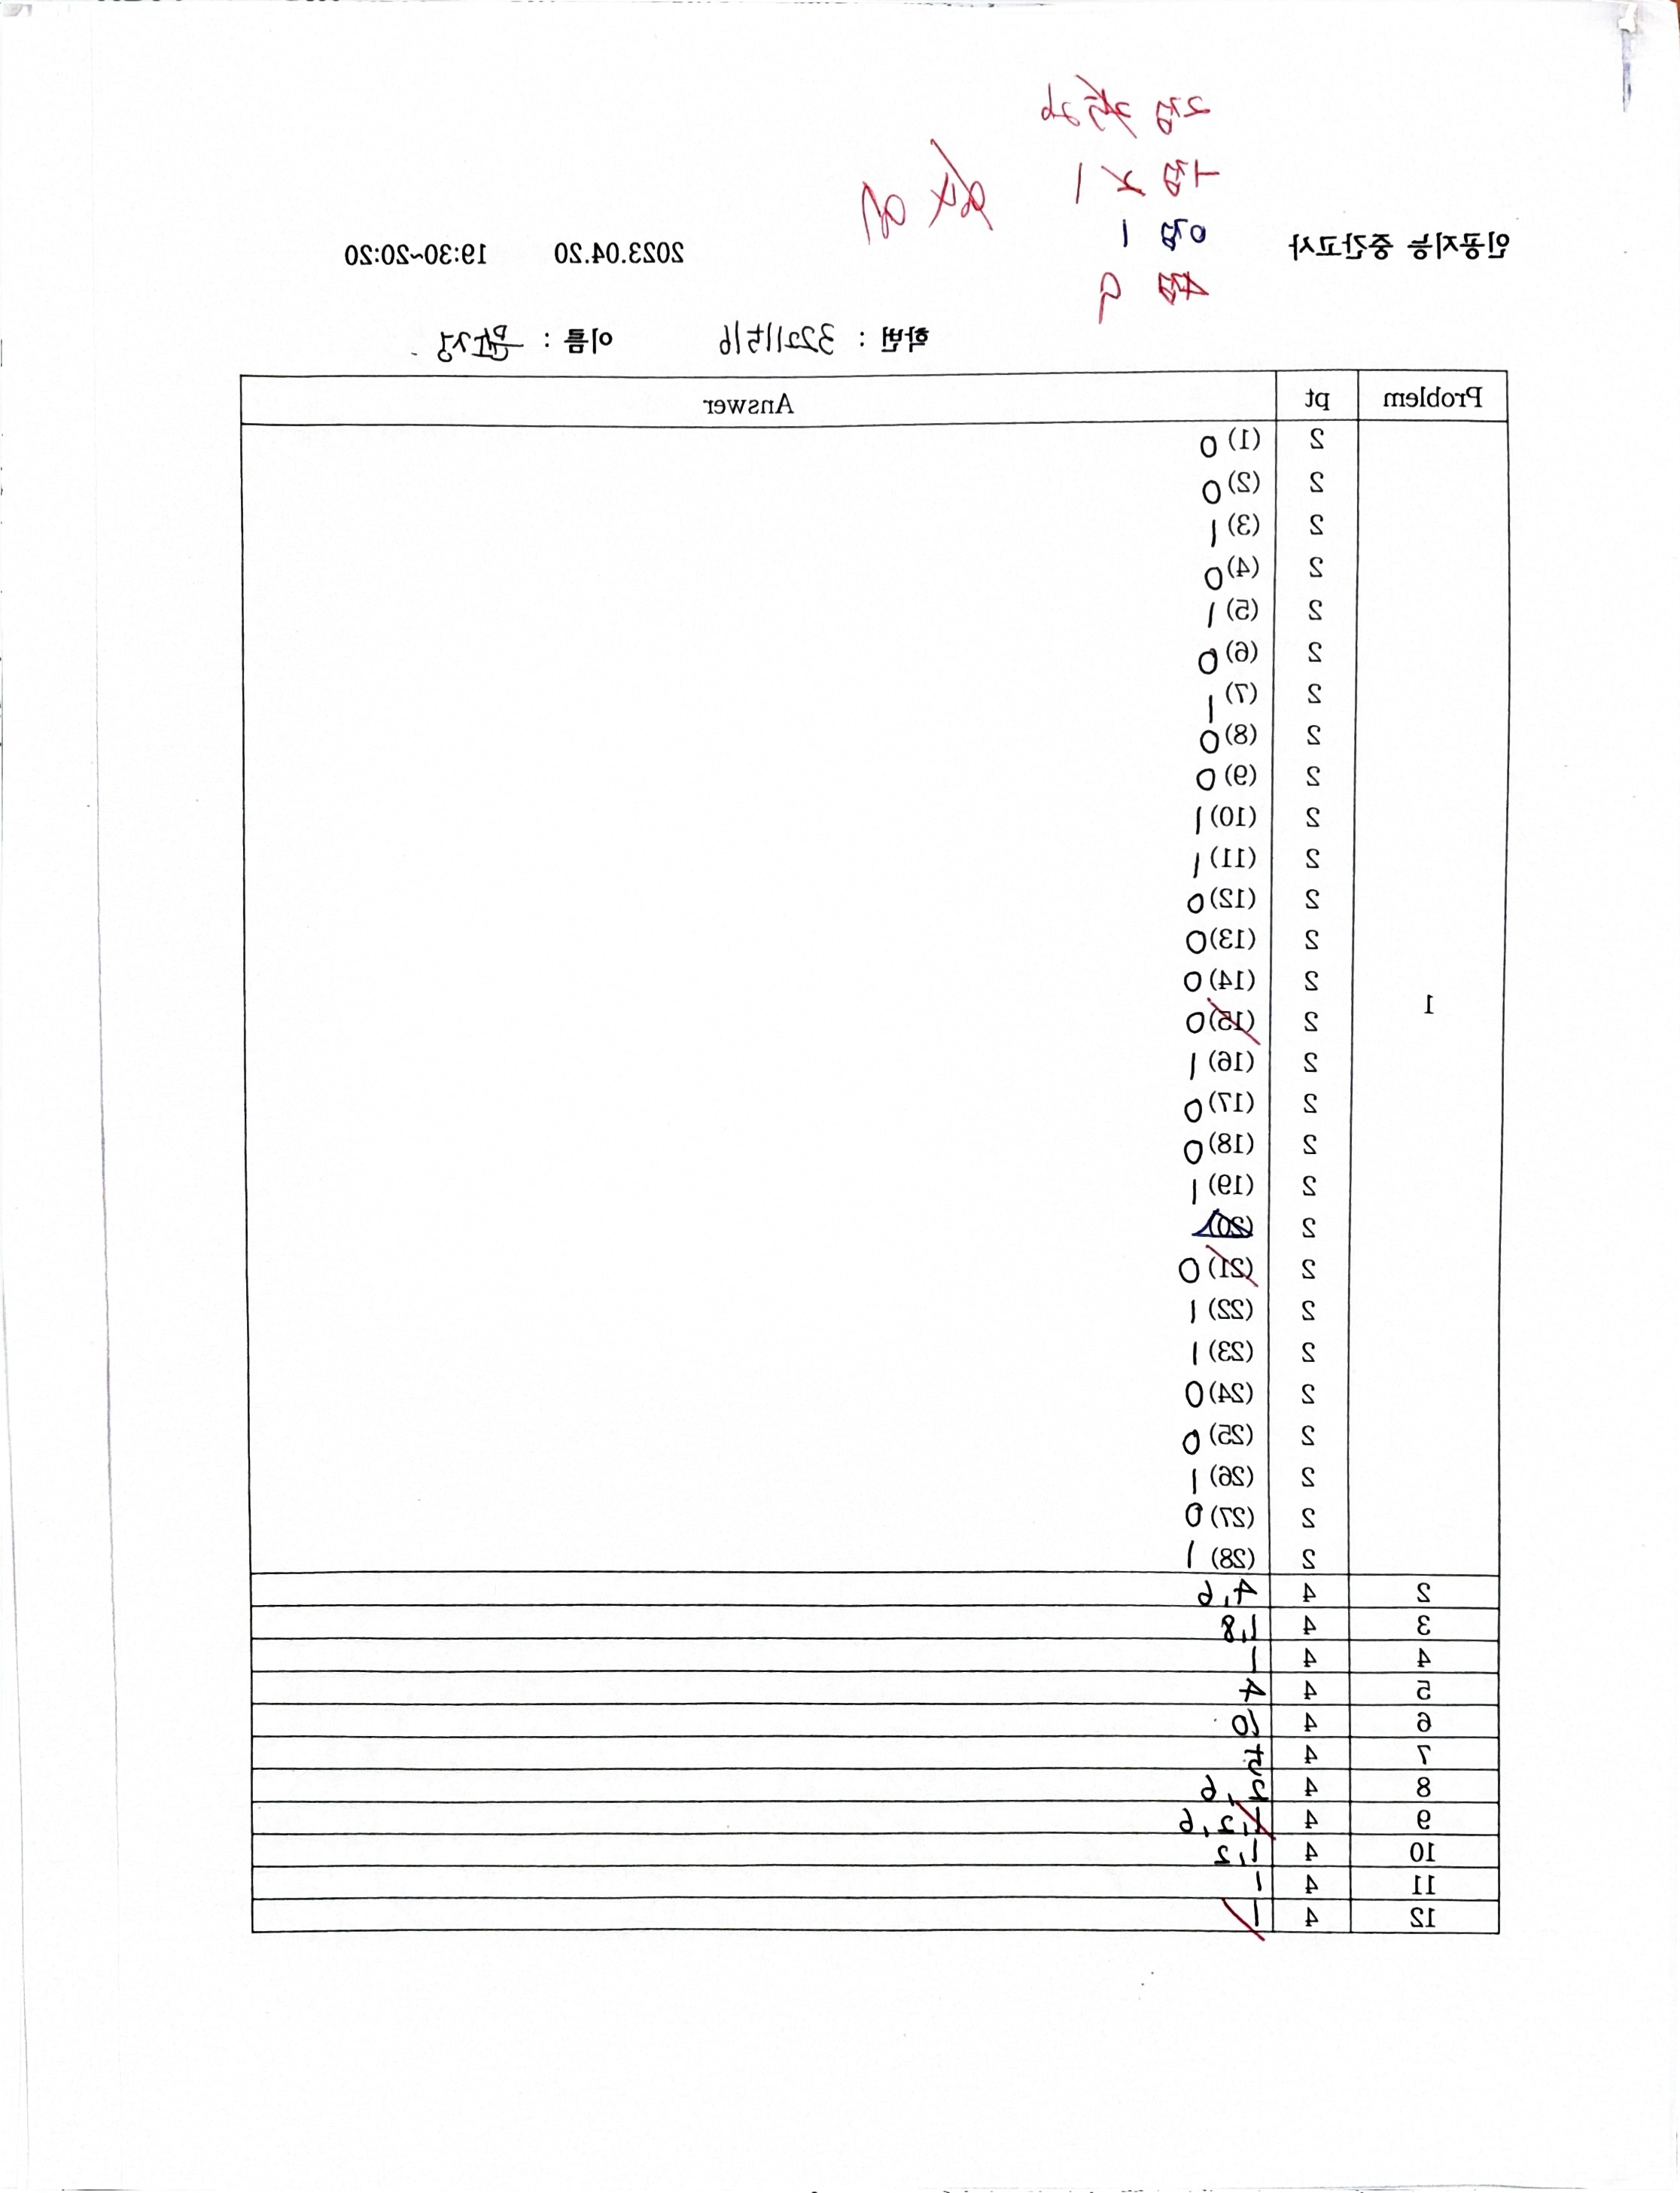 2점 26
1점 1
0점 1
4점 9
91
인공지능 중간고사 2023.04.20 19:30~20:20
학번 : 32211516 이름 :
Problem pt Answer
1
2 (1) 0
2 (2) 0
2 (3) 1
2 (4) 0
2 (5) 1
2 (6) 0
2 (7) 1
2 (8) 0
2 (9) 0
2 (10) 1
2 (11) 1
2 (12) 0
2 (13) 0
2 (14) 0
2 (15) 0
2 (16) 1
2 (17) 0
2 (18) 0
2 (19) 1
2 (20)
2 (21) 0
2 (22) 1
2 (23) 1
2 (24) 0
2 (25) 0
2 (26) 1
2 (27) 0
2 (28) 1
2 4 4,6
3 4 1,8
4 4 1
5 4 4
6 4 10
7 4 5
8 4 2,6
9 4 1,2,6
10 4 1,2
11 4 1
12 4 1